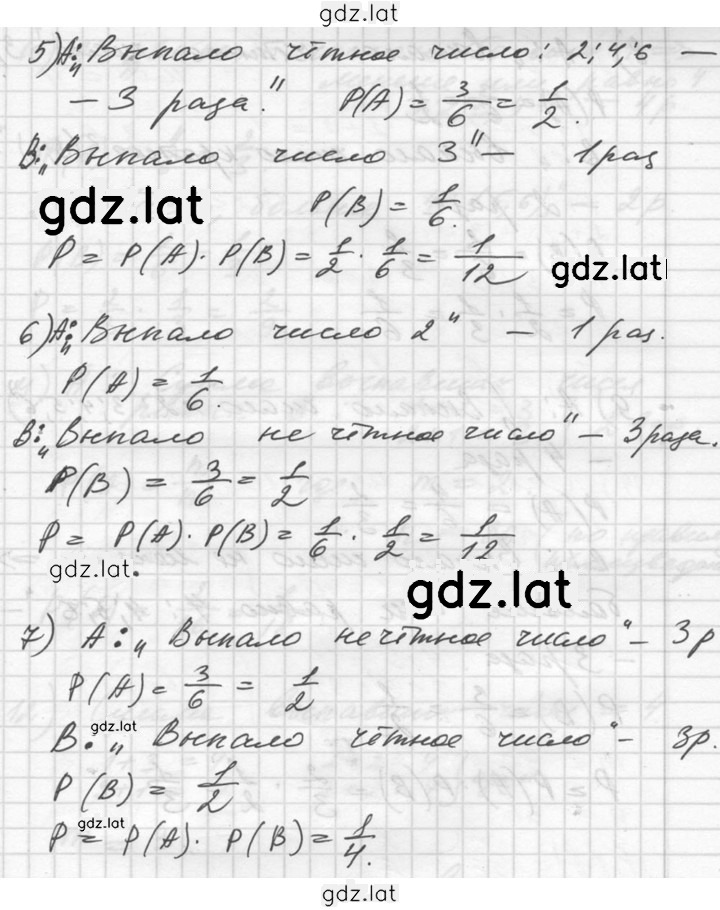 gdz.lat
5) A: „Выпало чётное число: 2; 4; 6 —
— 3 раза." P(A) = 3/6 = 1/2.
B: „Выпало число 3" — 1 раз
gdz.lat
P(B) = 1/6.
P = P(A) · P(B) = 1/2 · 1/6 = 1/12
gdz.lat
6) A: „Выпало число 2" — 1 раз.
P(A) = 1/6.
B: „Выпало не чётное число" — 3 раза.
P(B) = 3/6 = 1/2
P = P(A) · P(B) = 1/6 · 1/2 = 1/12
gdz.lat.
gdz.lat
7) A: „Выпало нечётное число" — 3 р
P(A) = 3/6 = 1/2
gdz.lat
B. „Выпало чётное число" — 3р.
P(B) = 1/2
gdz.lat
P = P(A) · P(B) = 1/4.
gdz.lat